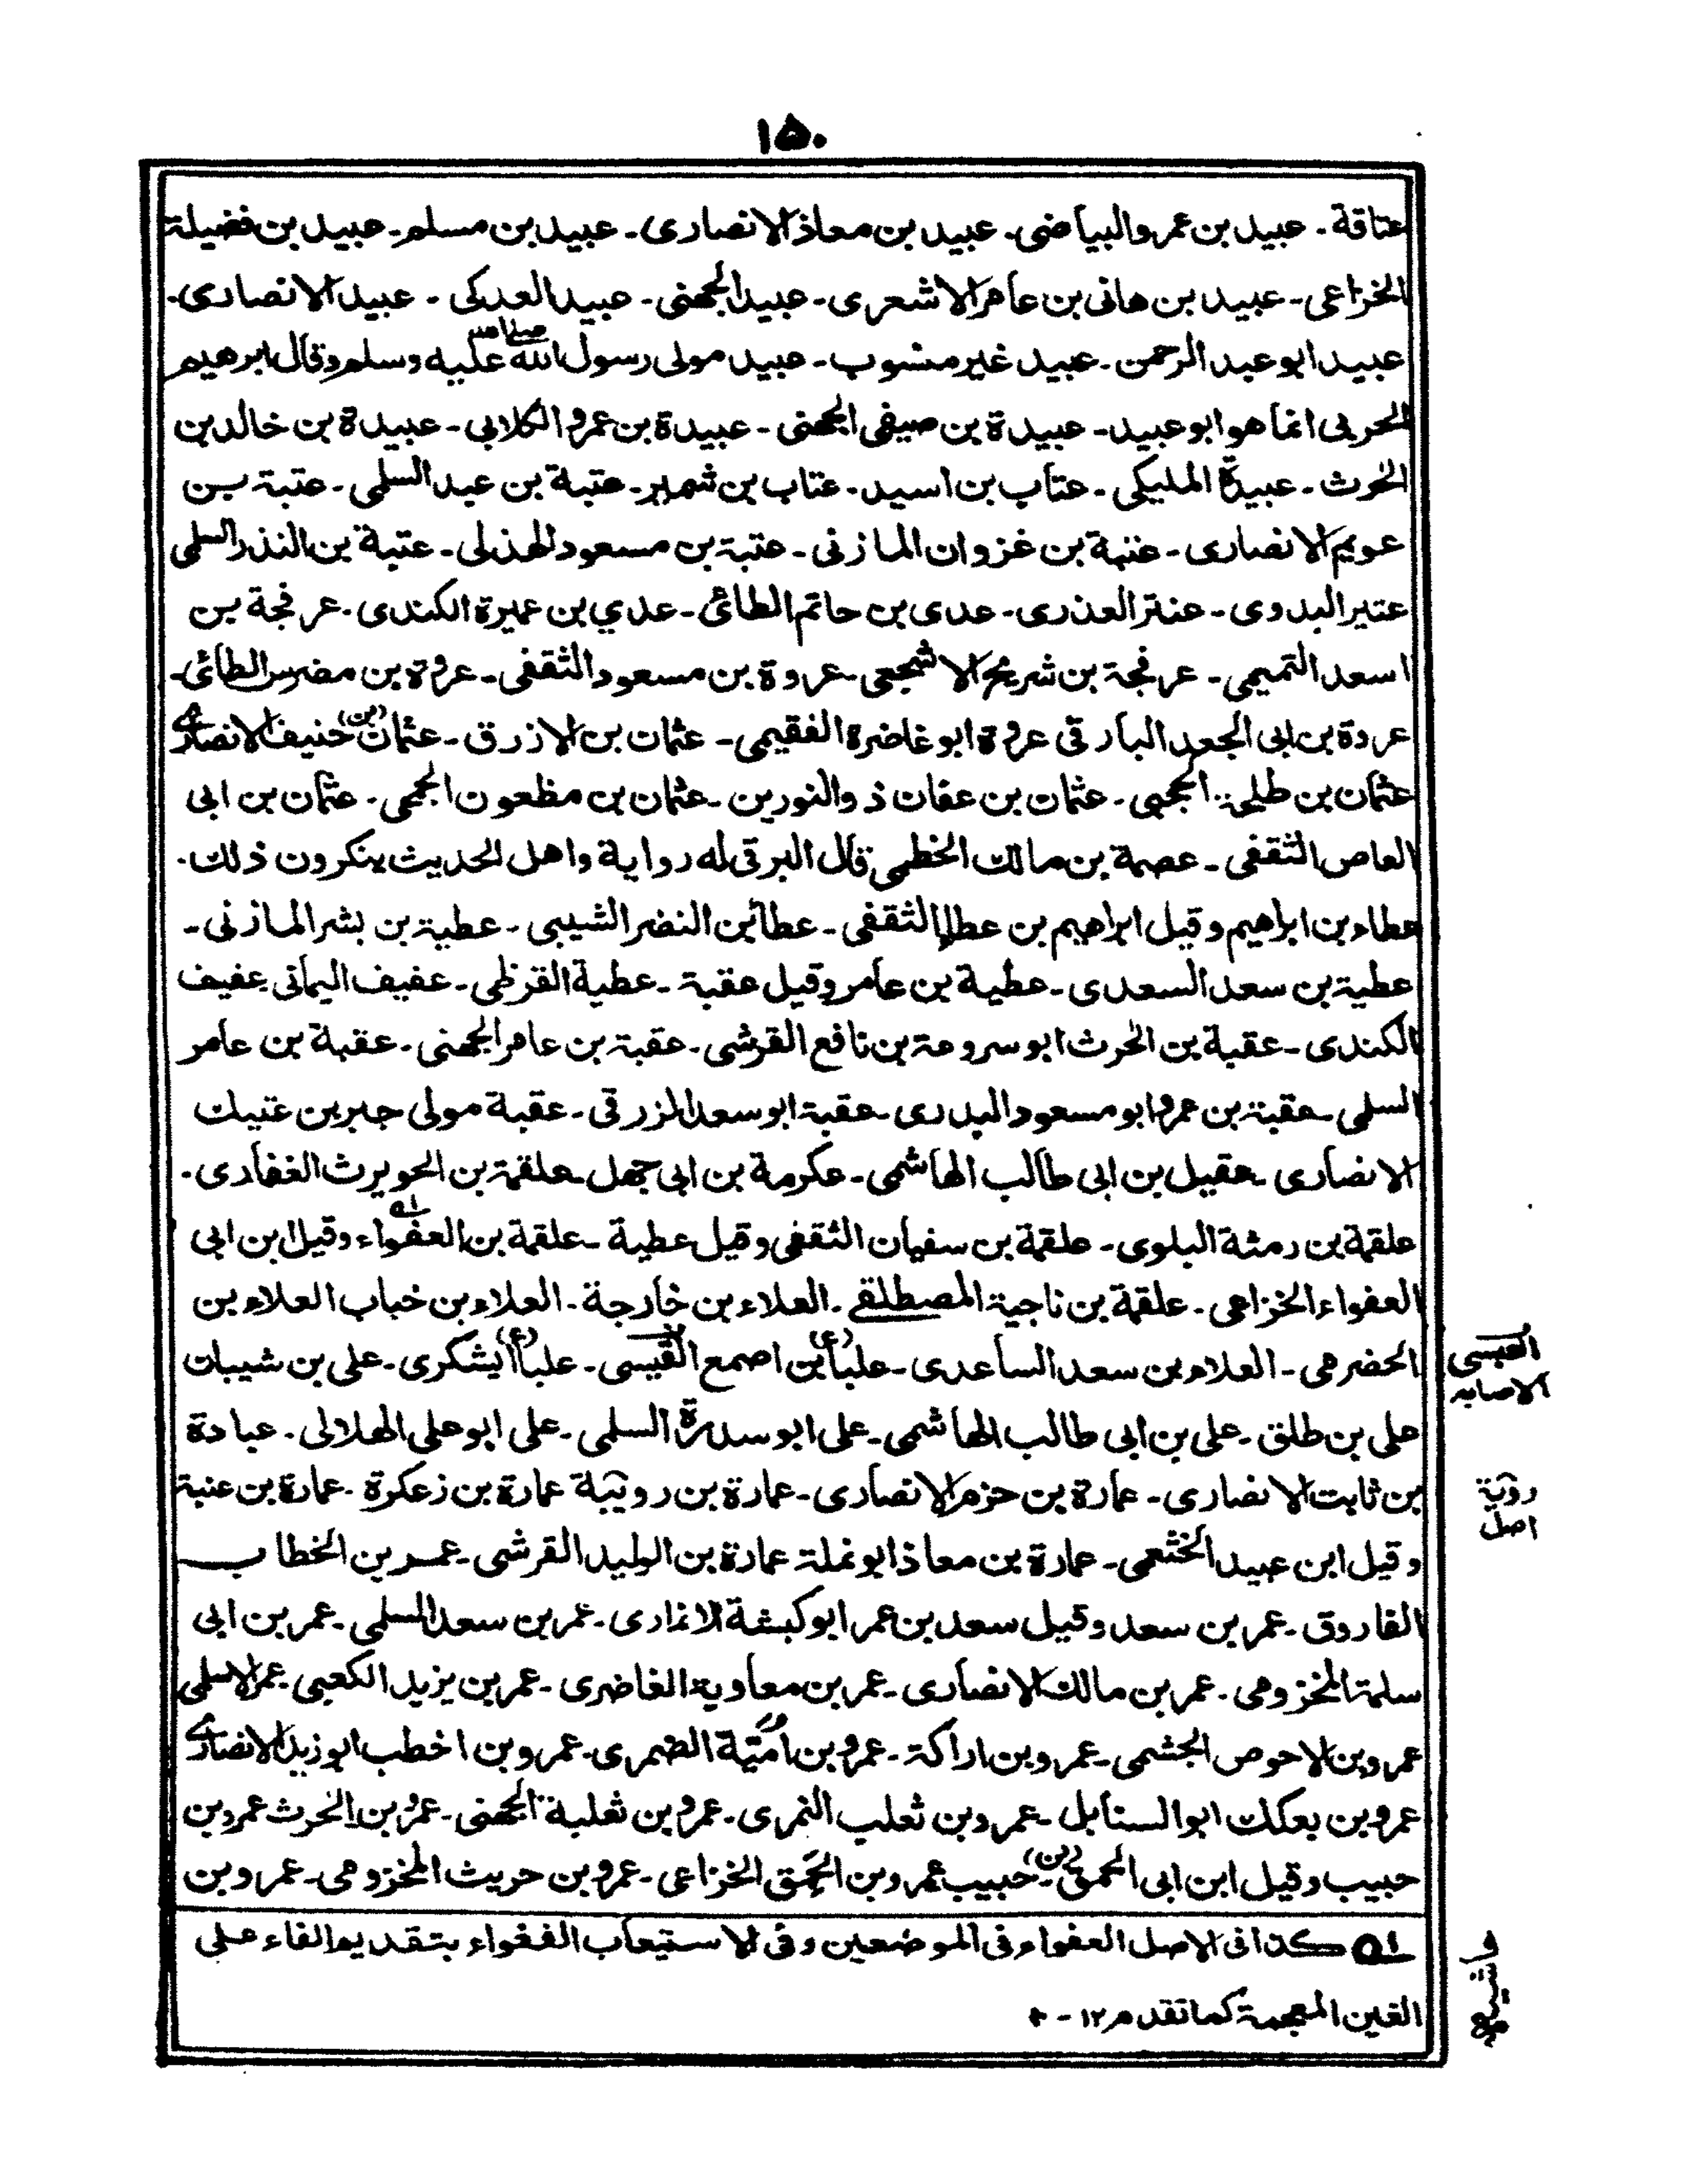 ١٥٠
عتاقة ـ عبيد بن عمرو البياضى ـ عبيد بن معاذ الانصارى ـ عبيد بن مسلم ـ عبيد بن فضيلة
الخزاعى ـ عبيد بن هانى بن عامر الاشعرى ـ عبيد الجهنى ـ عبيد العدكى ـ عبيد الانصارى ـ
عبيد ابو عبد الرحمن ـ عبيد غير منسوب ـ عبيد مولى رسول الله صلى الله عليه وسلم وقال ابرهيم
الحربى انما هو ابو عبيد ـ عبيدة بن صيفى الجهنى ـ عبيدة بن عمرو الكلابى ـ عبيدة بن خالد بن
الحرث ـ عبيدة المليكى ـ عتاب بن اسيد ـ عتاب بن شمير ـ عتبة بن عبد السلمى ـ عتبة بن
عويم الانصارى ـ عتبة بن غزوان المازنى ـ عتبة بن مسعود الهذلى ـ عتبة بن النذر السلمى
عتير البدوى ـ عنتر العذرى ـ عدى بن حاتم الطائى ـ عدي بن عميرة الكندى ـ عرفجة بن
اسعد التميمى ـ عرفجة بن شريح الاشجعى ـ عروة بن مسعود الثقفى ـ عروة بن مضرس الطائى ـ
عروة بن ابى الجعد البارقى عروة ابو غاضرة الفقيمى ـ عثمان بن الازرق ـ عثمان (بن) حنيف الانصارى
عثمان بن طلحة الحجبى ـ عثمان بن عفان ذو النورين ـ عثمان بن مظعون الجمحى ـ عثمان بن ابى
العاص الثقفى ـ عصمة بن مالك الخطمى قال البرقى له رواية واهل الحديث ينكرون ذلك ـ
عطاء بن ابراهيم وقيل ابراهيم بن عطاء الثقفى ـ عطا بن النضر الشيبى ـ عطية بن بشر المازنى ـ
عطية بن سعد السعدى ـ عطية بن عامر وقيل عقبة ـ عطية القرظى ـ عفيف اليمانى عفيف
الكندى ـ عقبة بن الحرث ابو سروعة بن نافع القرشى ـ عقبة بن عامر الجهنى ـ عقبة بن عامر
السلمى ـ عقبة بن عمرو ابو مسعود البدرى ـ عقبة ابو سعد الزرقى ـ عقبة مولى جبر بن عتيك
الانصارى ـ عقيل بن ابى طالب الهاشمى ـ عكرمة بن ابى جهل ـ علقمة بن الحويرث الغفارى ـ
علقمة بن رمثة البلوى ـ علقمة بن سفيان الثقفى وقيل عطية ـ علقمة بن العفواء ١ه وقيل ابن ابى
العفواء الخزاعى ـ علقمة بن ناجية المصطلقى ـ العلاء بن خارجة ـ العلاء بن خباب العلاء بن
الحضرمى ـ العلاء بن سعد الساعدى ـ علبا (ء) بن اصمع القيسى ـ علبا (ء) اليشكرى ـ على بن شيبان
العبسى
الاصابه
على بن طلق ـ على بن ابى طالب الهاشمى ـ على ابو سدرة السلمى ـ على ابو على الهلالى ـ عبادة
بن ثابت الانصارى ـ عمارة بن حزم الانصارى ـ عمارة بن رويبة عمارة بن زعكرة ـ عمارة بن عنبة
رؤية
اصل
وقيل ابن عبيد الخثعمى ـ عمارة بن معاذ ابو نملة عمارة بن الوليد القرشى ـ عمر بن الخطاب
الفاروق ـ عمر بن سعد وقيل سعد بن عمر ابو كبشة الانمارى ـ عمر بن سعد السلمى ـ عمر بن ابى
سلمة المخزومى ـ عمر بن مالك الانصارى ـ عمر بن معاوية الغاضرى ـ عمر بن يزيد الكعبى ـ عمر الاسلمى
عمرو بن الاحوص الجشمى ـ عمرو بن اراكة ـ عمرو بن اُميّة الضمرى ـ عمرو بن اخطب ابو زيد الانصارى
عمرو بن بعكك ابو السنابل ـ عمرو بن ثعلب النمرى ـ عمرو بن ثعلبة الجهنى ـ عمرو بن الحرث عمرو بن
حبيب وقيل ابن ابى الحمق (بن) حبيب عمرو بن الحَمِق الخزاعى ـ عمرو بن حريث المخزومى ـ عمرو بن
١ه كذا فى الاصل العفواء فى الموضعين وفى الاستيعاب الفغواء بتقديم الفاء على
الغين المعجمة كما تقدم ١٢ ـ